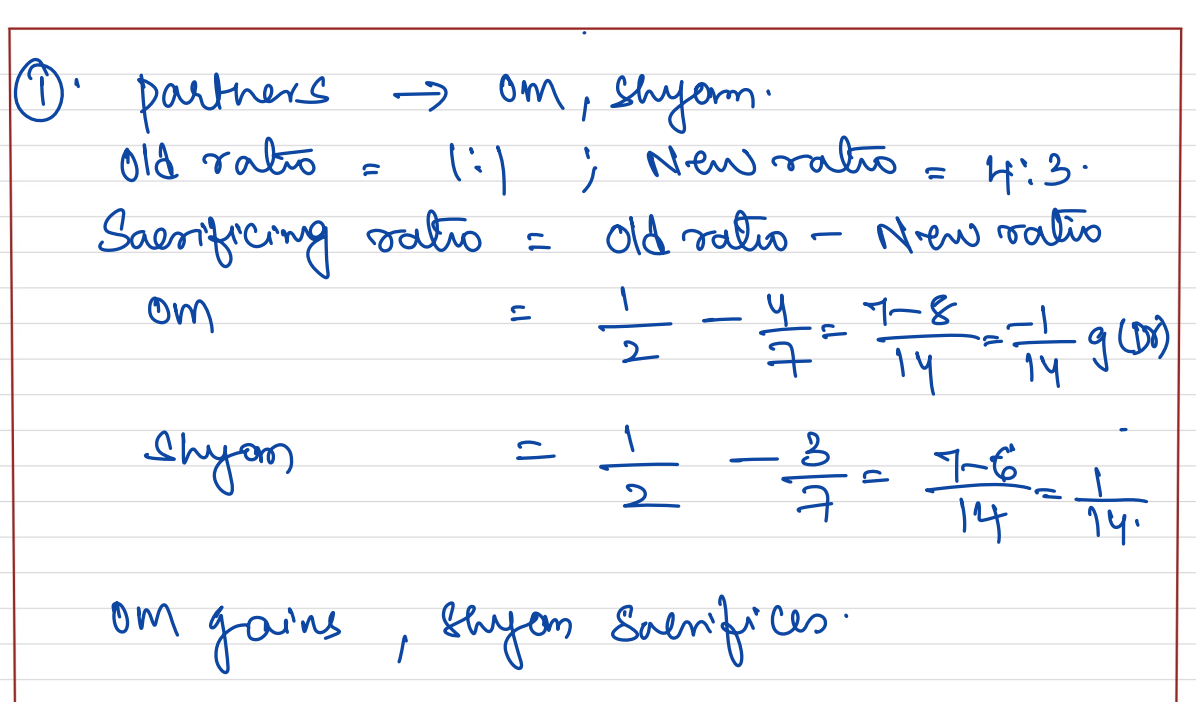 ① . partners → om, shyam.
Old ratio = 1:1 ; New ratio = 4:3.
Sacrificing ratio = old ratio - New ratio
om = 1/2 - 4/7 = 7-8/14 = -1/14 g(Dr)
shyam = 1/2 - 3/7 = 7-6/14 = 1/14.
om gains, shyam sacrifices.